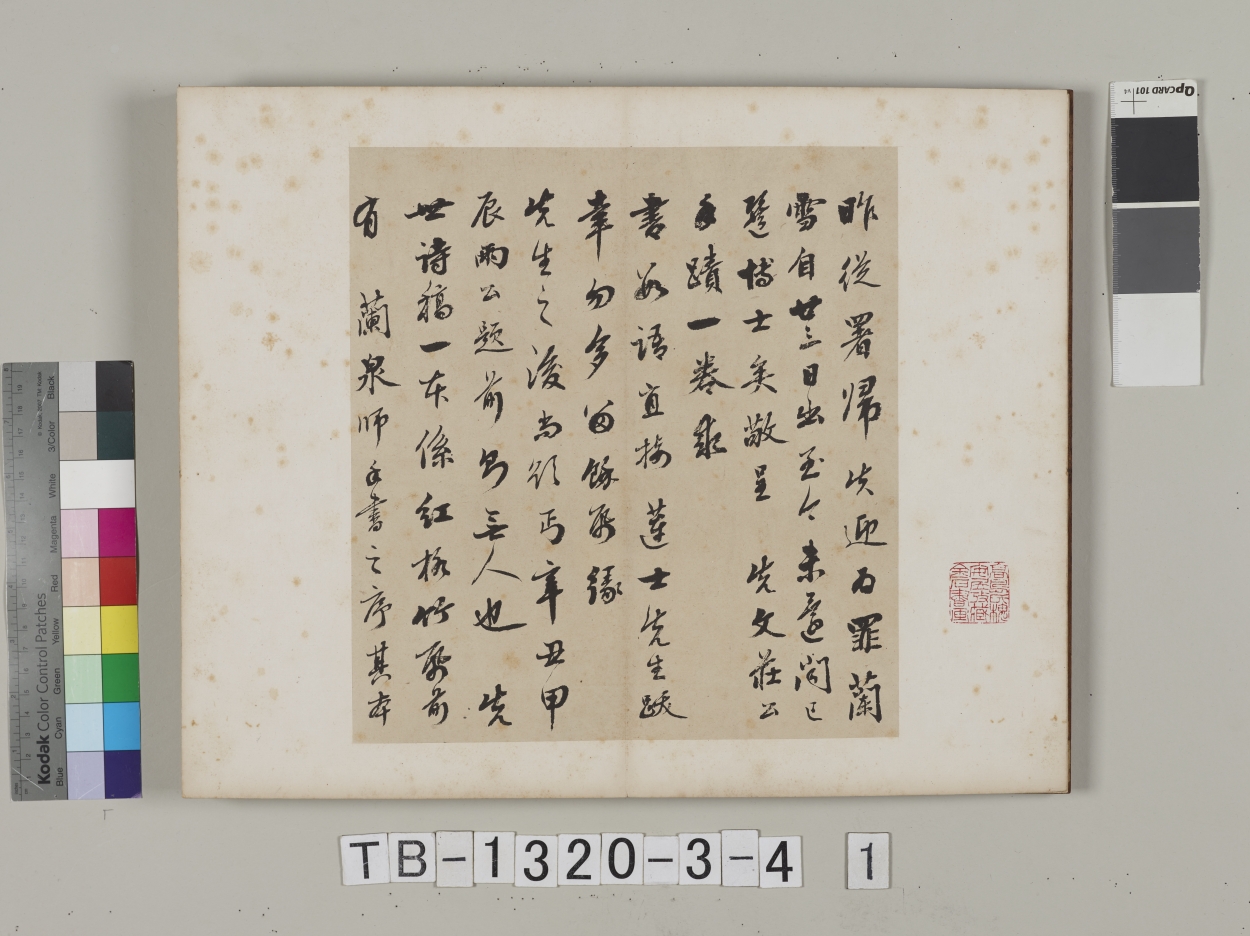 昨從署歸失迎为罪蘭
雪自廿三日出至今未還聞已
謁博士矣敬呈 先文莊公
手蹟一卷求
書數語直接蓮士先生跋
幸勿多留餘紙
先生之後尚欲丐辛丑甲
辰兩公題前勿無人也 先
世詩稿一本係紅格竹紙前
有 蘭泉師手書之序其本
TB-1320-3-4 1
Kodak Color Control Patches
© Kodak
Blue Cyan Green Yellow Red Magenta White 3/Color Black
QPCARD 101 v4